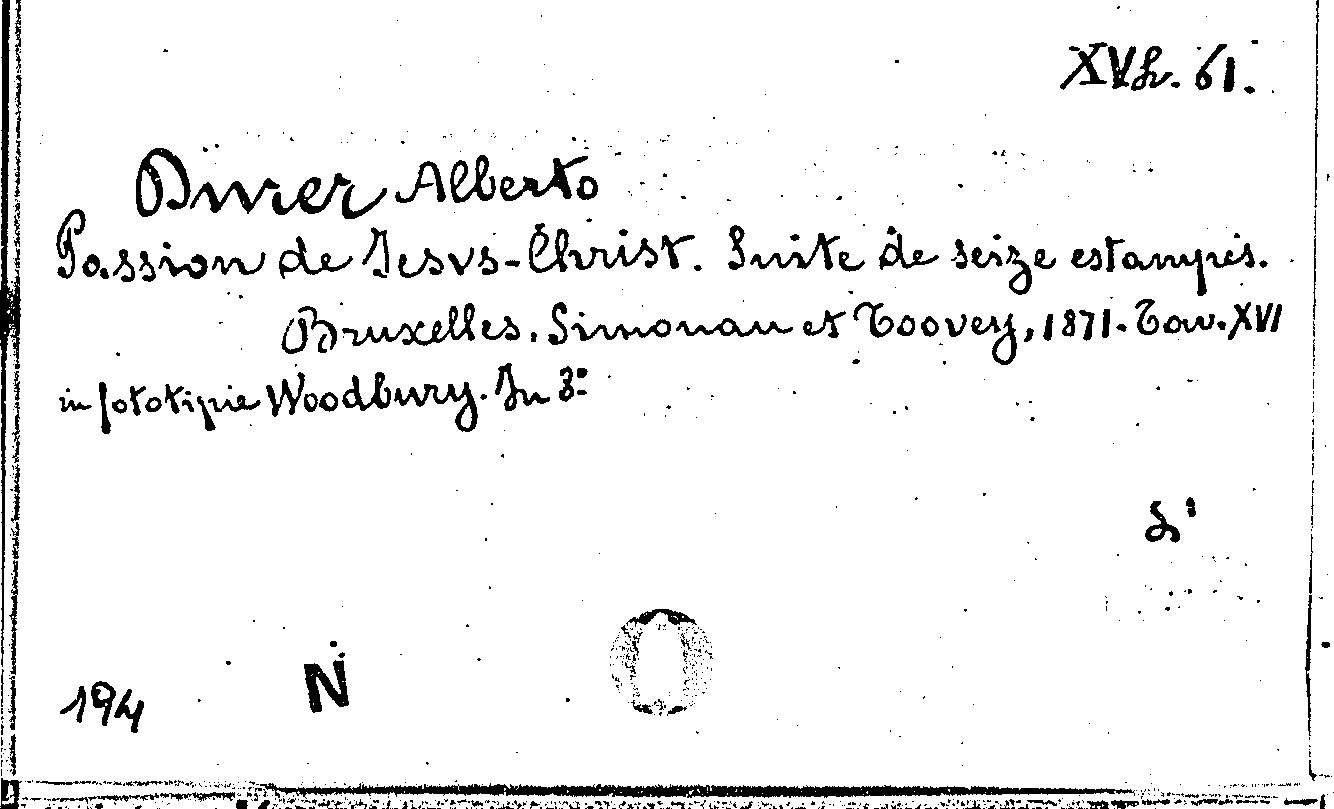 XVh. 61.
Durer Alberto
Passion de Jesus-Christ. Suite de seize estampes.
Bruxelles. Simonau et Toovey, 1871. Tav. XVI
in fototipie Woodbury. In 8º
194
N